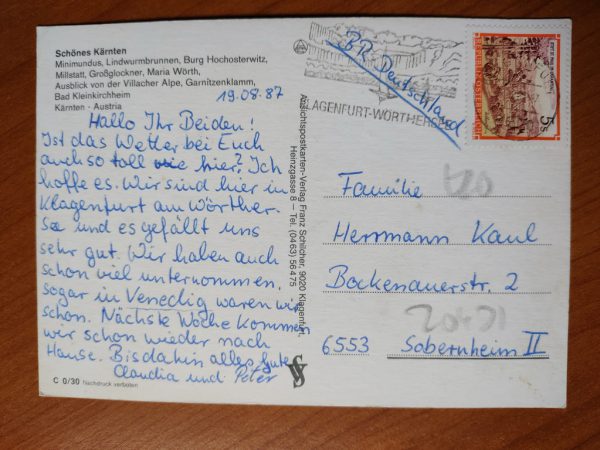 Schönes Kärnten
Minimundus, Lindwurmbrunnen, Burg Hochosterwitz,
Millstatt, Großglockner, Maria Wörth,
Ausblick von der Villacher Alpe, Garnitzenklamm,
Bad Kleinkirchheim
Kärnten - Austria
19.08.87
Hallo Ihr Beiden!
Ist das Wetter bei Euch
auch so toll wie hier? Ich
hoffe es. Wir sind hier in
Klagenfurt am Wörther-
See und es gefällt uns
sehr gut. Wir haben auch
schon viel unternommen,
sogar in Venedig waren wir
schon. Nächste Woche kommen
wir schon wieder nach
Hause. Bis dahin alles Gute
Claudia und Peter
C 0/30 Nachdruck verboten
Ansichtspostkarten-Verlag Franz Schilcher, 9020 Klagenfurt,
Heinzgasse 8 – Tel. (0463) 56 4 75
BR Deutschland
KLAGENFURT-WÖRTHERSEE
5 S
REPUBLIK ÖSTERREICH
Familie
Herrmann Kaul
Bockenauerstr. 2
6553 Sobernheim II